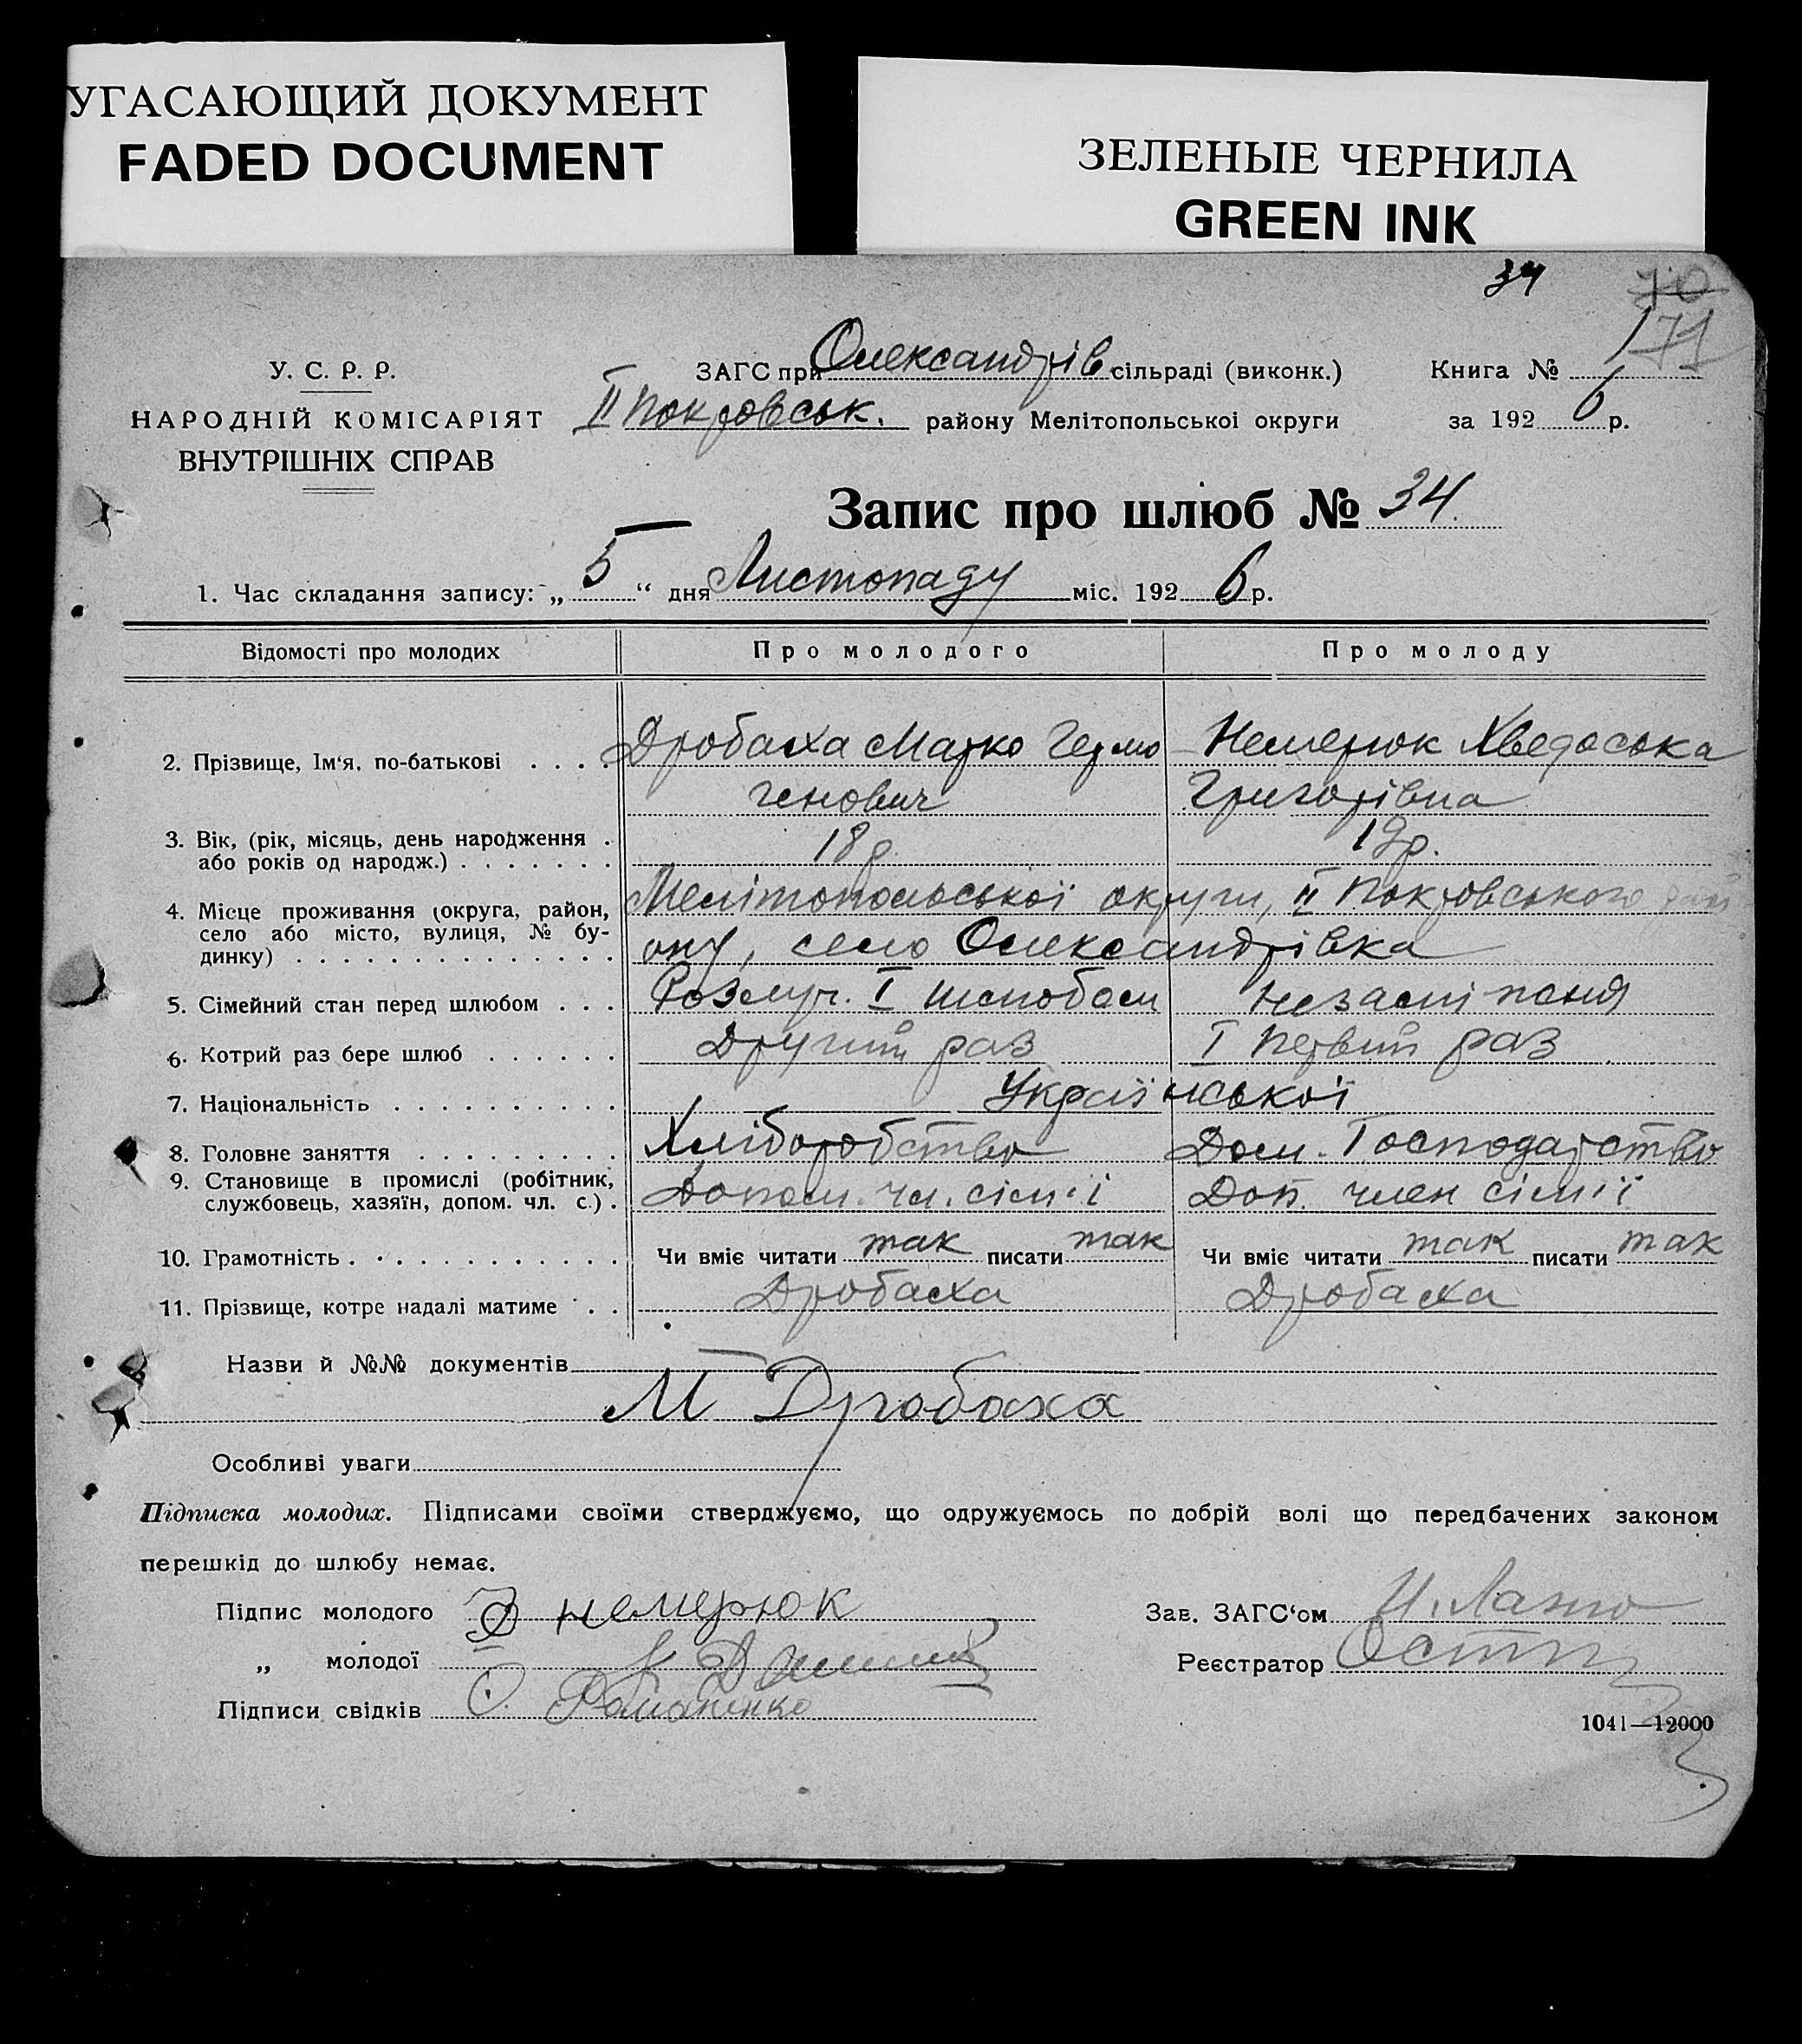 УГАСАЮЩИЙ ДОКУМЕНТ
FADED DOCUMENT
ЗЕЛЕНЫЕ ЧЕРНИЛА
GREEN INK
34
70
171
У. С. Р. Р.
НАРОДНІЙ КОМІСАРІЯТ
ВНУТРІШНІХ СПРАВ
ЗАГС при Олександрів сільраді (виконк.)
Книга №
II Покровськ. району Мелітопольської округи
за 1926 р.
Запис про шлюб № 34.
1. Час складання запису: „5“ дня Листопаду міс. 1926 р.
Відомості про молодих Про молодого Про молоду
2. Прізвище, Ім‘я, по-батькові . . . . Дробаха Марко Гермо Немерюк Хведоська
генович Григорівна
3. Вік, (рік, місяць, день народження . 18 р. 19 р.
або років од народж.) . . . . . . .
4. Місце проживання (округа, район, Мелітопольської округи, II Покровського рай
село або місто, вулиця, № бу- ону, село Олександрівка
динку) . . . . . . . . . . . . . .
5. Сімейний стан перед шлюбом . . . Розлуч. I шлюбом
6. Котрий раз бере шлюб . . . . . . Другий раз I Первий раз
7. Національність . . . . . . . . . . Української
8. Головне заняття . . . . . . . . . Хліборобство Дом. Господарство
9. Становище в промислі (робітник, Допом. чл. сім'ї Доп. член сім'ї
службовець, хазяїн, допом. чл. с.) .
10. Грамотність . . . . . . . . . . . . Чи вміє читати так писати так Чи вміє читати так писати так
11. Прізвище, котре надалі матиме . . . Дробаха Дробаха
Назви й №№ документів
М Дробаха
Особливі уваги
Підписка молодих. Підписами своїми стверджуємо, що одружуємось по добрій волі що передбачених законом
перешкід до шлюбу немає.
Підпис молодого немерюк Зав. ЗАГС‘ом
„ молодої Реєстратор
Підписи свідків Романенко
1041—12000